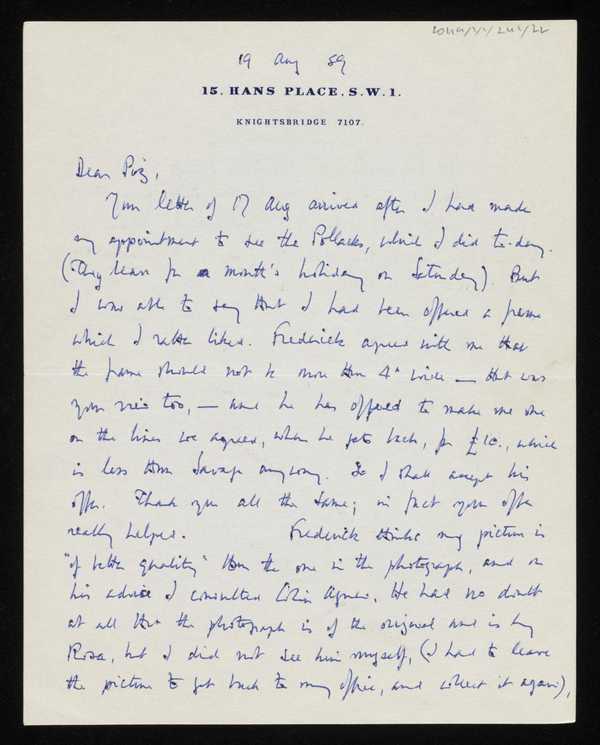 19 Aug 59
15, HANS PLACE, S.W.1.
KNIGHTSBRIDGE 7107.
Dear
Your letter of 17 Aug arrived after I had made
my appointment to see the Pollacks, which I did to-day.
(They leave for a month's holiday on Saturday). But
I was able to say that I had been offered a frame
which I rather liked. Frederick agrees with me that
the frame should not be more than 4" wide — that was
your view too, — and he has offered to make me one
on the lines we agreed, when he gets back, for £10., which
is less than Savage anyway. So I shall accept his
offer. Thank you all the same; in fact your offer
really helped. Frederick thinks my picture is
"of better quality" than the one in the photograph, and on
his advice I consulted Colin Agnew. He had no doubt
at all that the photograph is of the original and is by
Rosa, but I did not see him myself, (I had to leave
the picture to get back to my office, and collect it again),